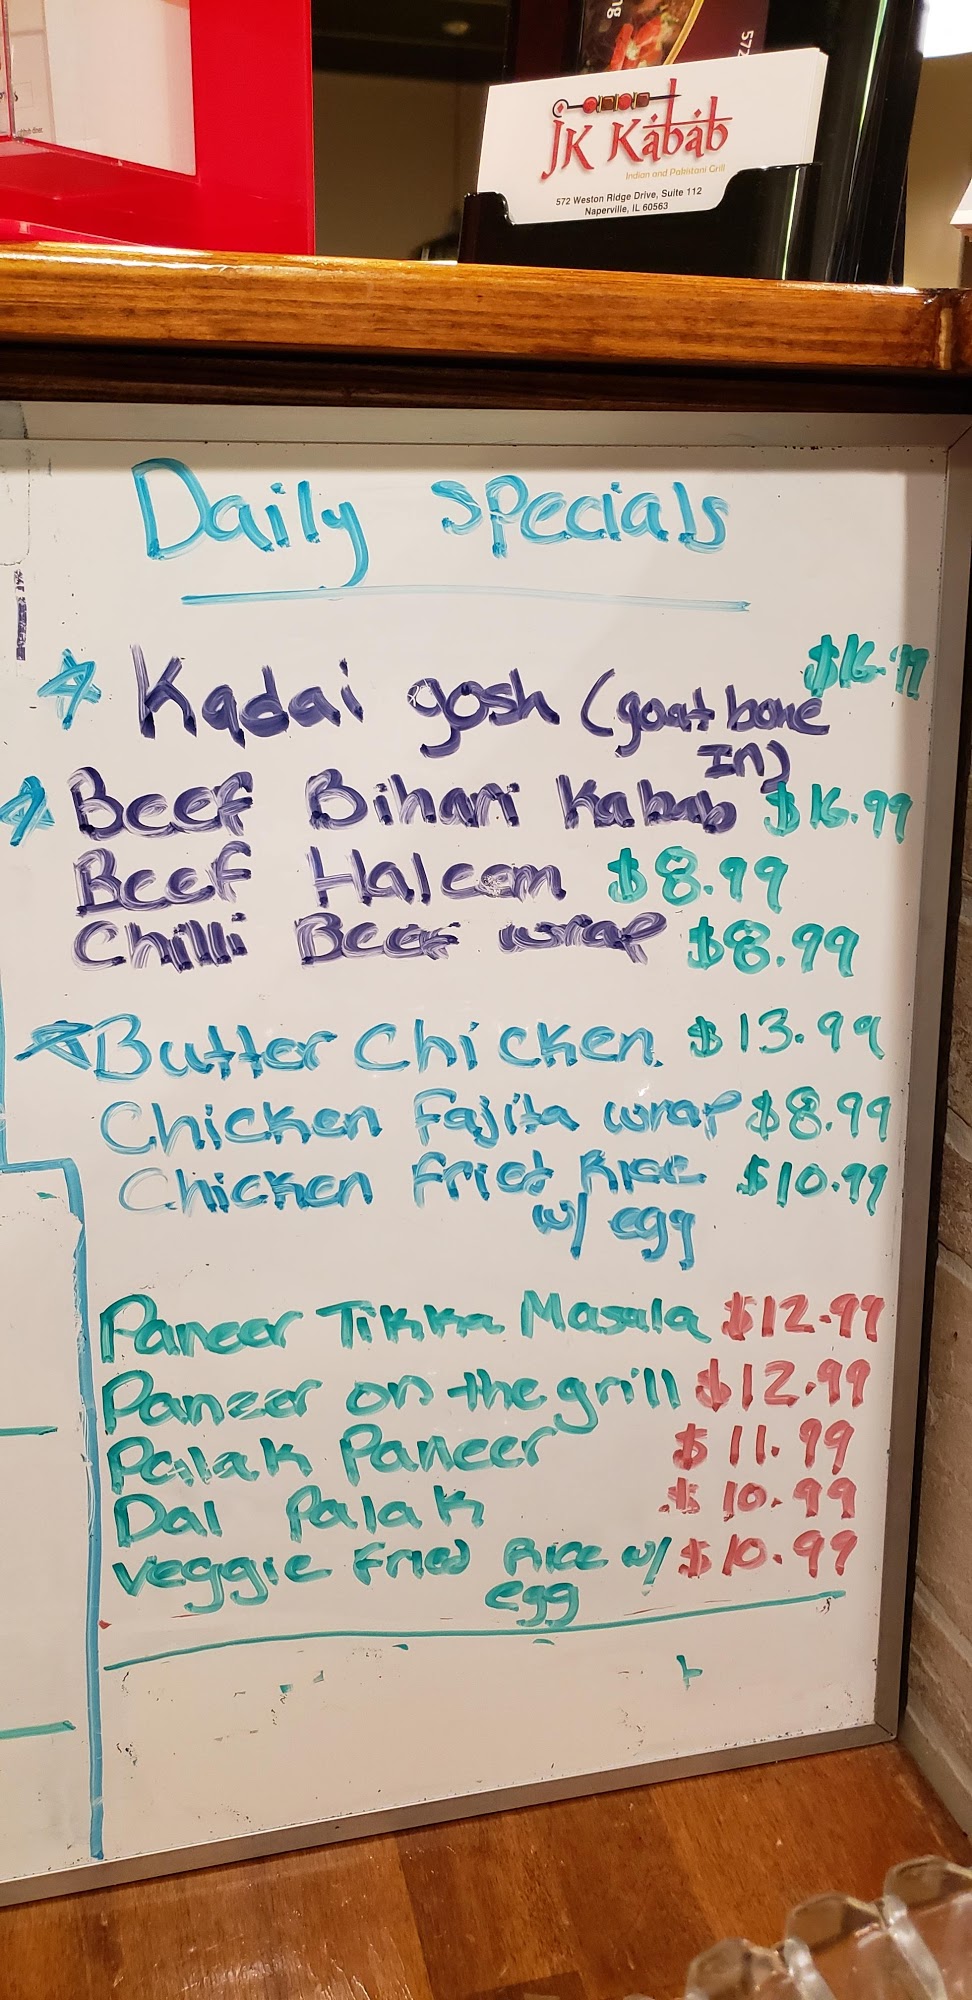 JK Kabab
Indian and Pakistani Grill
572 Weston Ridge Drive, Suite 112
Naperville, IL 60563
Daily Specials
Kadai gosh (goat bone $16.99
In)
Beef Bihari Kabab $16.99
Beef Haleem $8.99
Chilli Beef wrap $8.99
Butter Chicken $13.99
Chicken Fajita wrap $8.99
Chicken Fried Rice $10.99
w/ egg
Paneer Tikka Masala $12.99
Paneer on the grill $12.99
Palak Paneer $11.99
Dal Palak $10.99
Veggie Fried Rice w/ $10.99
egg